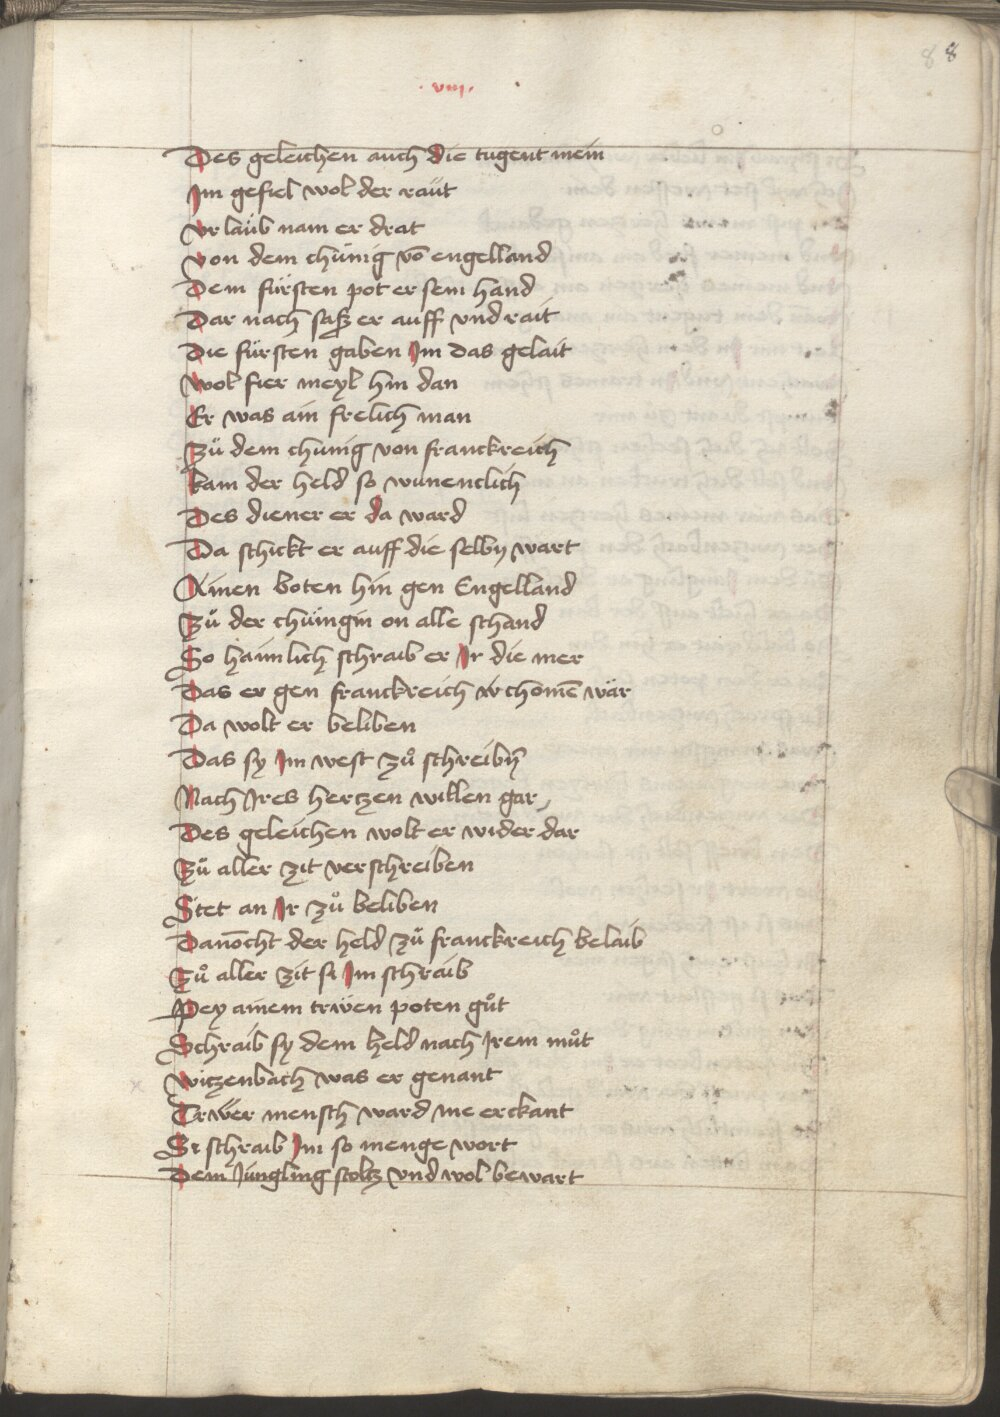 88
. viii .
Des geleichen auch die tugent mein
Im gefiel wol der raüt
vrlaüb nam er drat
von dem chünig võ engelland
Dem fürsten pot er sein hand
Dar nach saß er auff vnd rait
Die fürsten gaben Im das gelait
wol fier meyl hin dan
Er was ain frelich man
Zü dem chünig von franckreich
kam der held so wunenclich
Des diener er da ward
Da schickt er auff die selbñ wart
Ainen boten hin gen Engelland
Zü der chüngin on alle schand
So haimlich schraib er Ir die mer
Das er gen franckreich chomẽ wär
Da wolt er beliben
Das sy Im west zuͦ schreibñ
Nach Ires hertzen willen gar
Des geleichen wolt er wider dar
Zü aller zit verschreiben
Stet an Ir zuͦ beliben
Danõcht der held zü franckreich belaib
Zuͦ aller zit si Im schraib
Pey ainem trẅen poten guͦt
Schraib sy dem held nach Irem muͦt
witzenbach was er genant
Trẅer mensch ward nie erckant
Si schraib Im so menge wort
Dem Jüngling stoltz vnd wol bewart